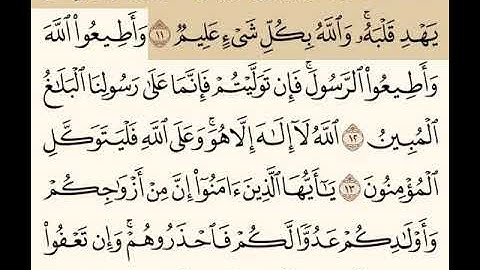 يَهْدِ قَلْبَهُۥۚ وَٱللَّهُ بِكُلِّ شَىْءٍ عَلِيمٌ ١١ وَأَطِيعُوا۟ ٱللَّهَ
وَأَطِيعُوا۟ ٱلرَّسُولَۚ فَإِن تَوَلَّيْتُمْ فَإِنَّمَا عَلَىٰ رَسُولِنَا ٱلْبَلَٰغُ
ٱلْمُبِينُ ١٢ ٱللَّهُ لَآ إِلَٰهَ إِلَّا هُوَۚ وَعَلَى ٱللَّهِ فَلْيَتَوَكَّلِ
ٱلْمُؤْمِنُونَ ١٣ يَٰٓأَيُّهَا ٱلَّذِينَ ءَامَنُوٓا۟ إِنَّ مِنْ أَزْوَٰجِكُمْ
وَأَوْلَٰدِكُمْ عَدُوًّا لَّكُمْ فَٱحْذَرُوهُمْۚ وَإِن تَعْفُوا۟